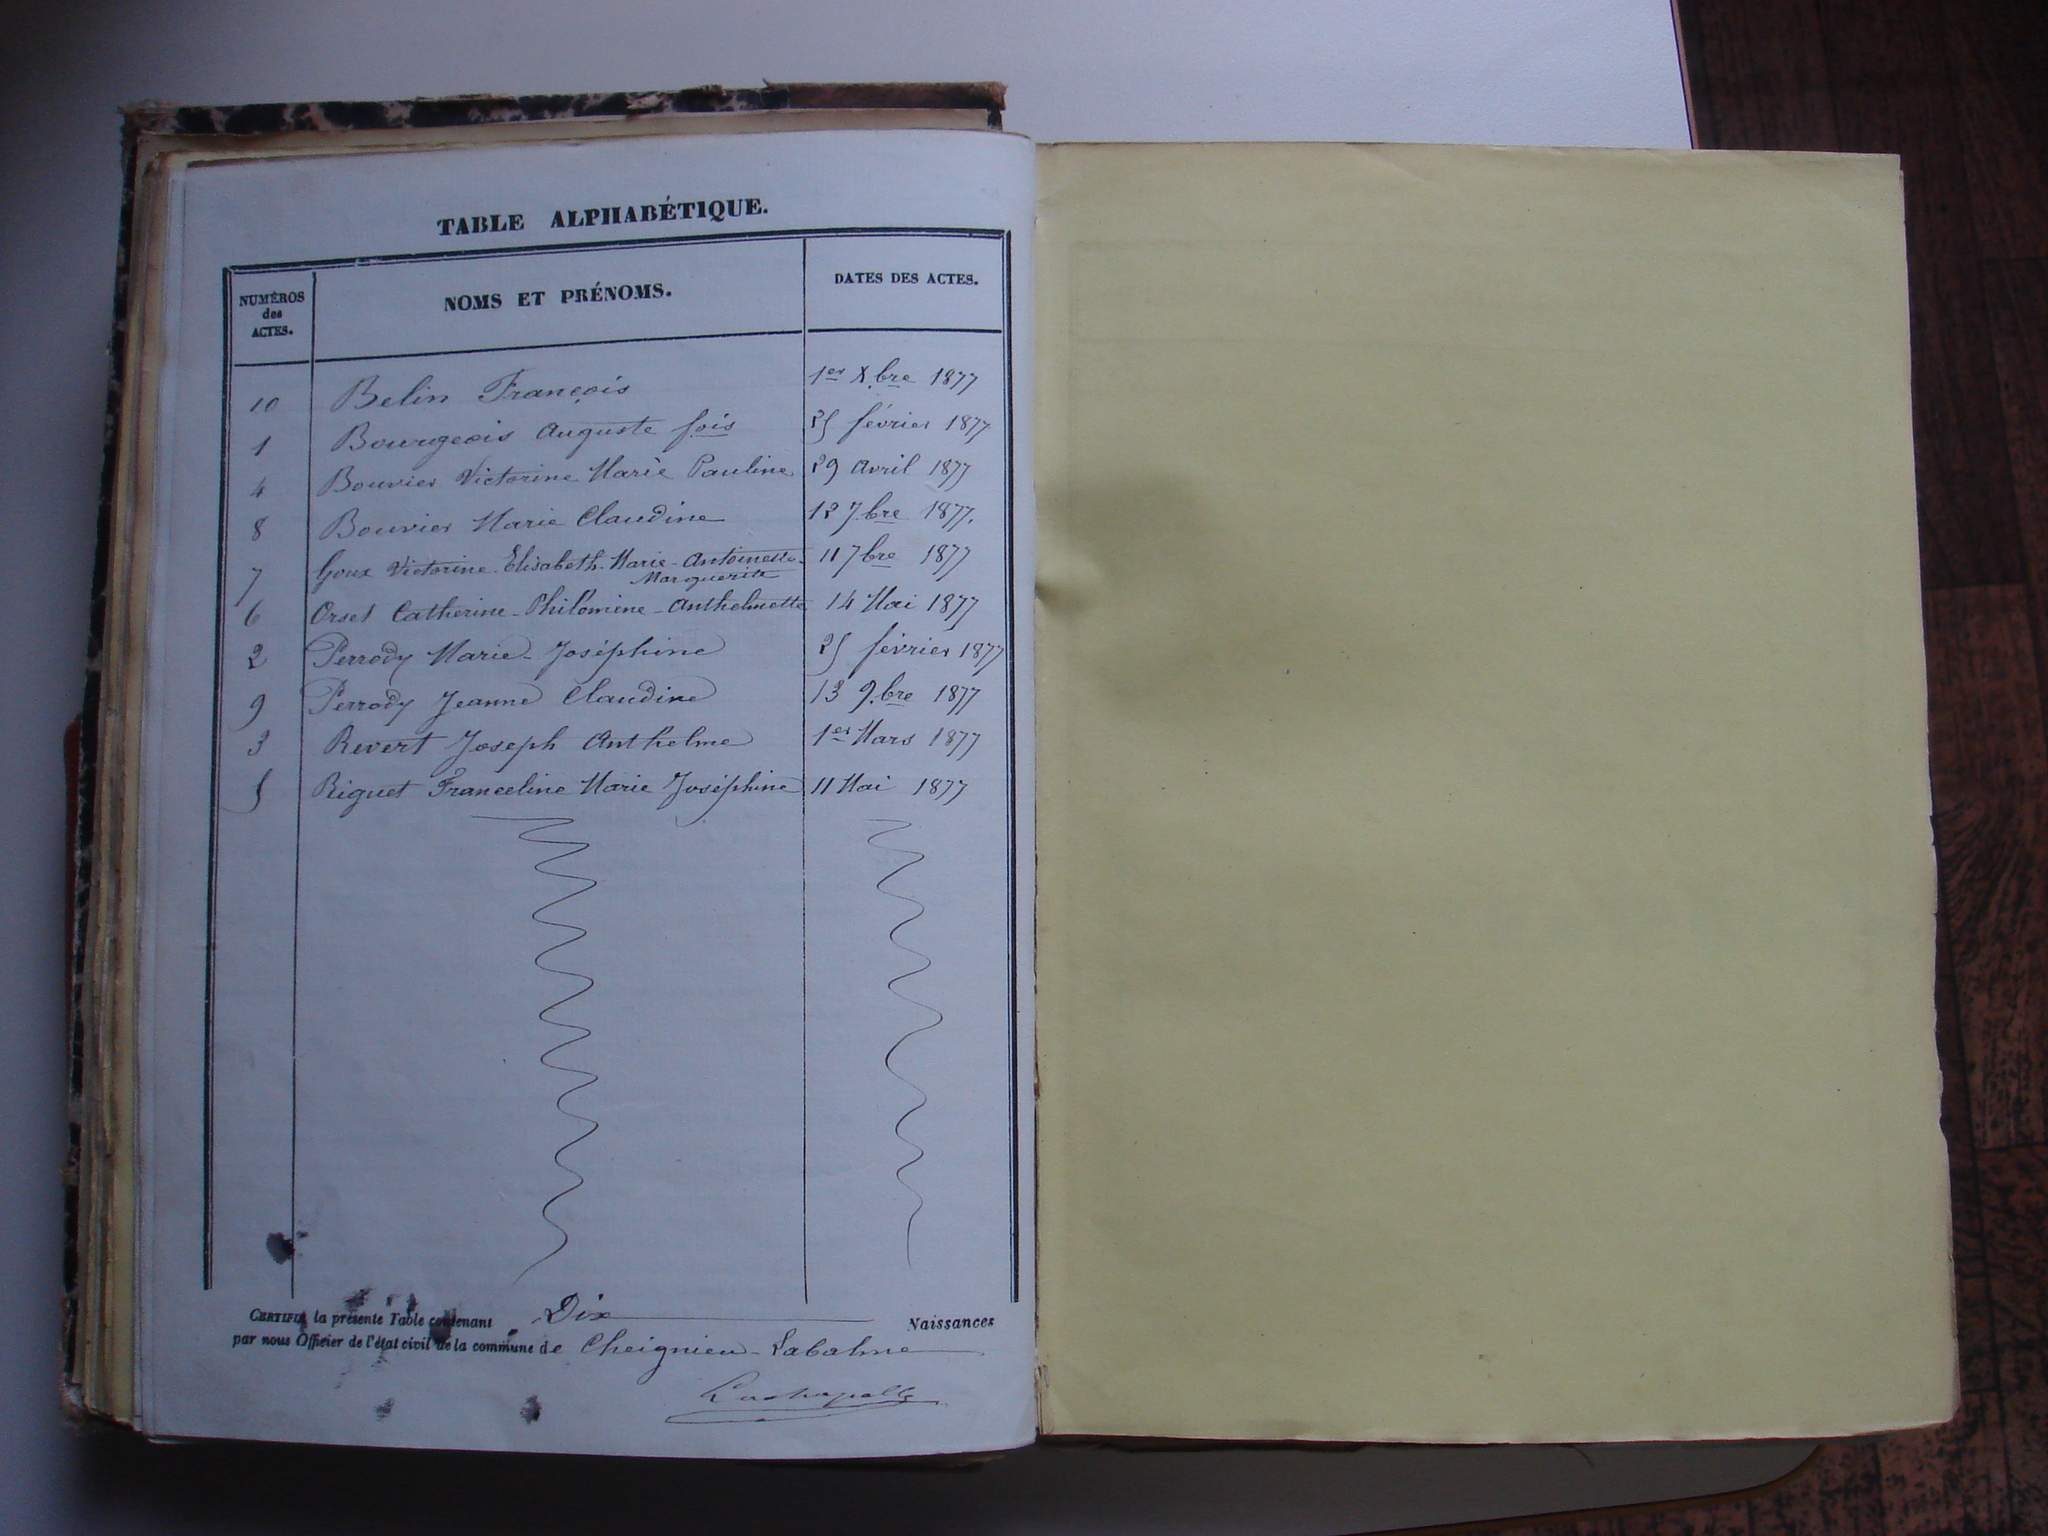 TABLE ALPHABÉTIQUE.
NUMÉROS des ACTES. NOMS ET PRÉNOMS. DATES DES ACTES.
10 Belin François 1er Xbre 1877
1 Bourgeois Auguste fois 25 février 1877
4 Bouvier Victorine Marie Pauline 29 avril 1877
8 Bouvier Marie Claudine 12 7bre 1877.
7 Goux Victorine-Elisabeth-Marie-Antoinette-
Marguerite 11 7bre 1877
6 Orset Catherine-Philomène-Anthelmette 14 Mai 1877
2 Perrody Marie-Joséphine 25 février 1877
9 Perrody Jeanne Claudine 13 9.bre 1877
3 Revert Joseph Anthelme 1er Mars 1877
5 Riguet Franceline Marie Joséphine 11 Mai 1877
CERTIFIÉ la présente Table contenant Dix Naissances
par nous Officier de l'état civil de la commune de Cheignieu-Labalme